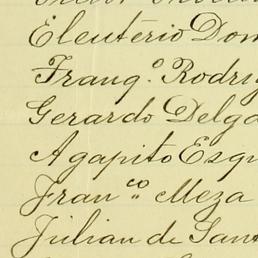 Eleuterio Dom
Franq.o Rodrig
Gerardo Delga
Agapito Esqu
Fran.co Meza
Julian de San